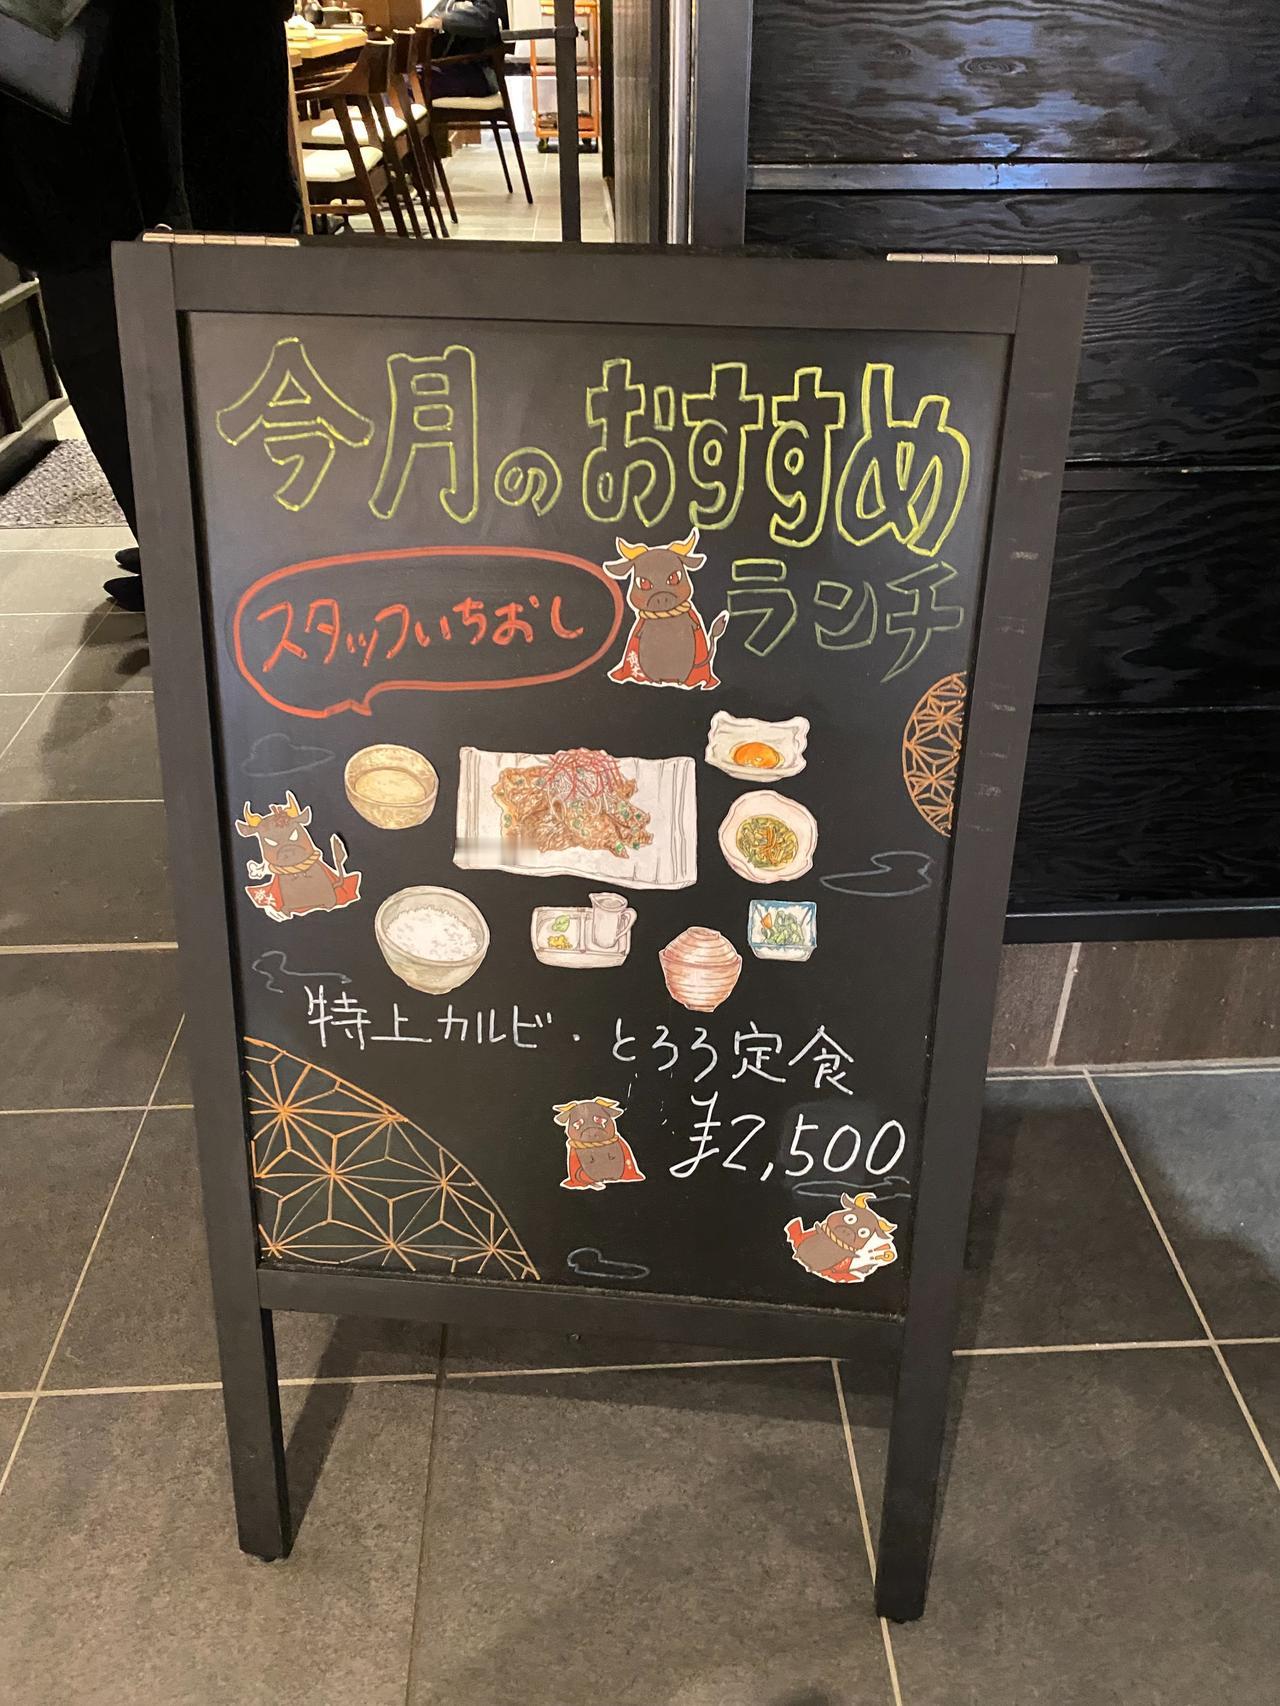 今月のおすすめ
スタッフいちおし
ランチ
特上カルビ・とろろ定食
¥2,500